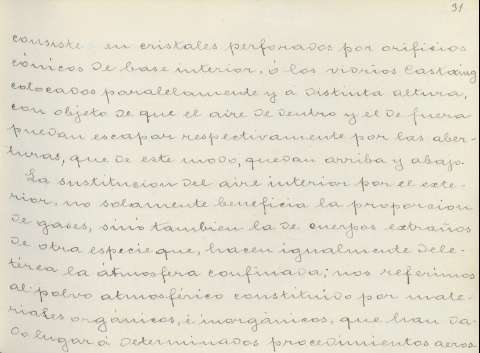 31
consiste en cristales perforados por orificios
cónicos de base interior, ó los vidrios Castaing
colocados paralelamente y a distinta altura,
con objeto de que el aire de dentro y el de fuera
puedan escapar respectivamente por las aber-
turas, que de este modo, quedan arriba y abajo.
La sustitucion del aire interior por el exte-
rior, no solamente beneficia la proporcion
de gases, sinó tambien la de cuerpos extraños
de otra especie que, hacen igualmente dele-
térea la átmosfera confinada; nos referimos
al polvo atmosférico constituido por mate-
riales orgánicos, é inorgánicos, que han da-
do lugar á determinados procedimientos aeros